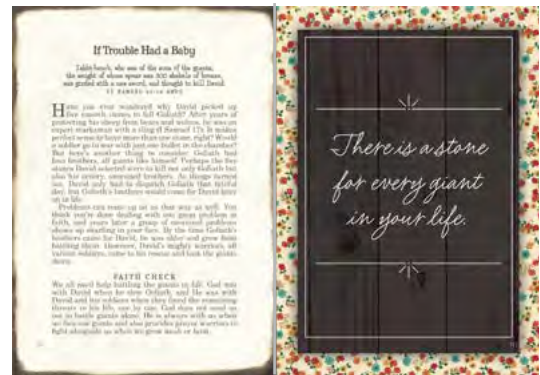 If Trouble Had a Baby
Ishbi-benob, who was of the sons of the giants,
the weight of whose spear was 300 shekels of bronze,
was girded with a new sword, and thought to kill David.
II SAMUEL 21:16
Have you ever wondered why David picked up
five smooth stones to fell Goliath? After years of
protecting his sheep from bears and wolves, he was an
expert marksman with a sling (I Samuel 17). It makes
perfect sense to have more than one stone, right? Would
a soldier go to war with just one bullet in the chamber?
But here's another thing to consider: Goliath had
four brothers, all giants like himself. Perhaps the five
stones David selected were to kill not only Goliath but
also his ornery, oversized brothers. As things turned
out, David only had to dispatch Goliath that fateful
day, but Goliath's brothers would come for David later
on in life.
Problems can come up on us that way as well. You
think you're done dealing with one great problem in
faith, and years later a group of oversized problems
shows up standing in your face. By the time Goliath's
brothers came for David, he was older and grew faint
battling them. However, David's mighty warriors, all
various soldiers, came to his rescue and took the giants
down.
FAITH CHECK
We all need help battling the giants in life. God was
with David when he slew Goliath, and He was with
David and his soldiers when they faced the remaining
threats in his life, one by one. God does not send us
out to battle giants alone. He is always with us when
we face our giants and also provides prayer warriors to
fight alongside us when we grow weak or faint.
There is a stone
for every giant
in your life.